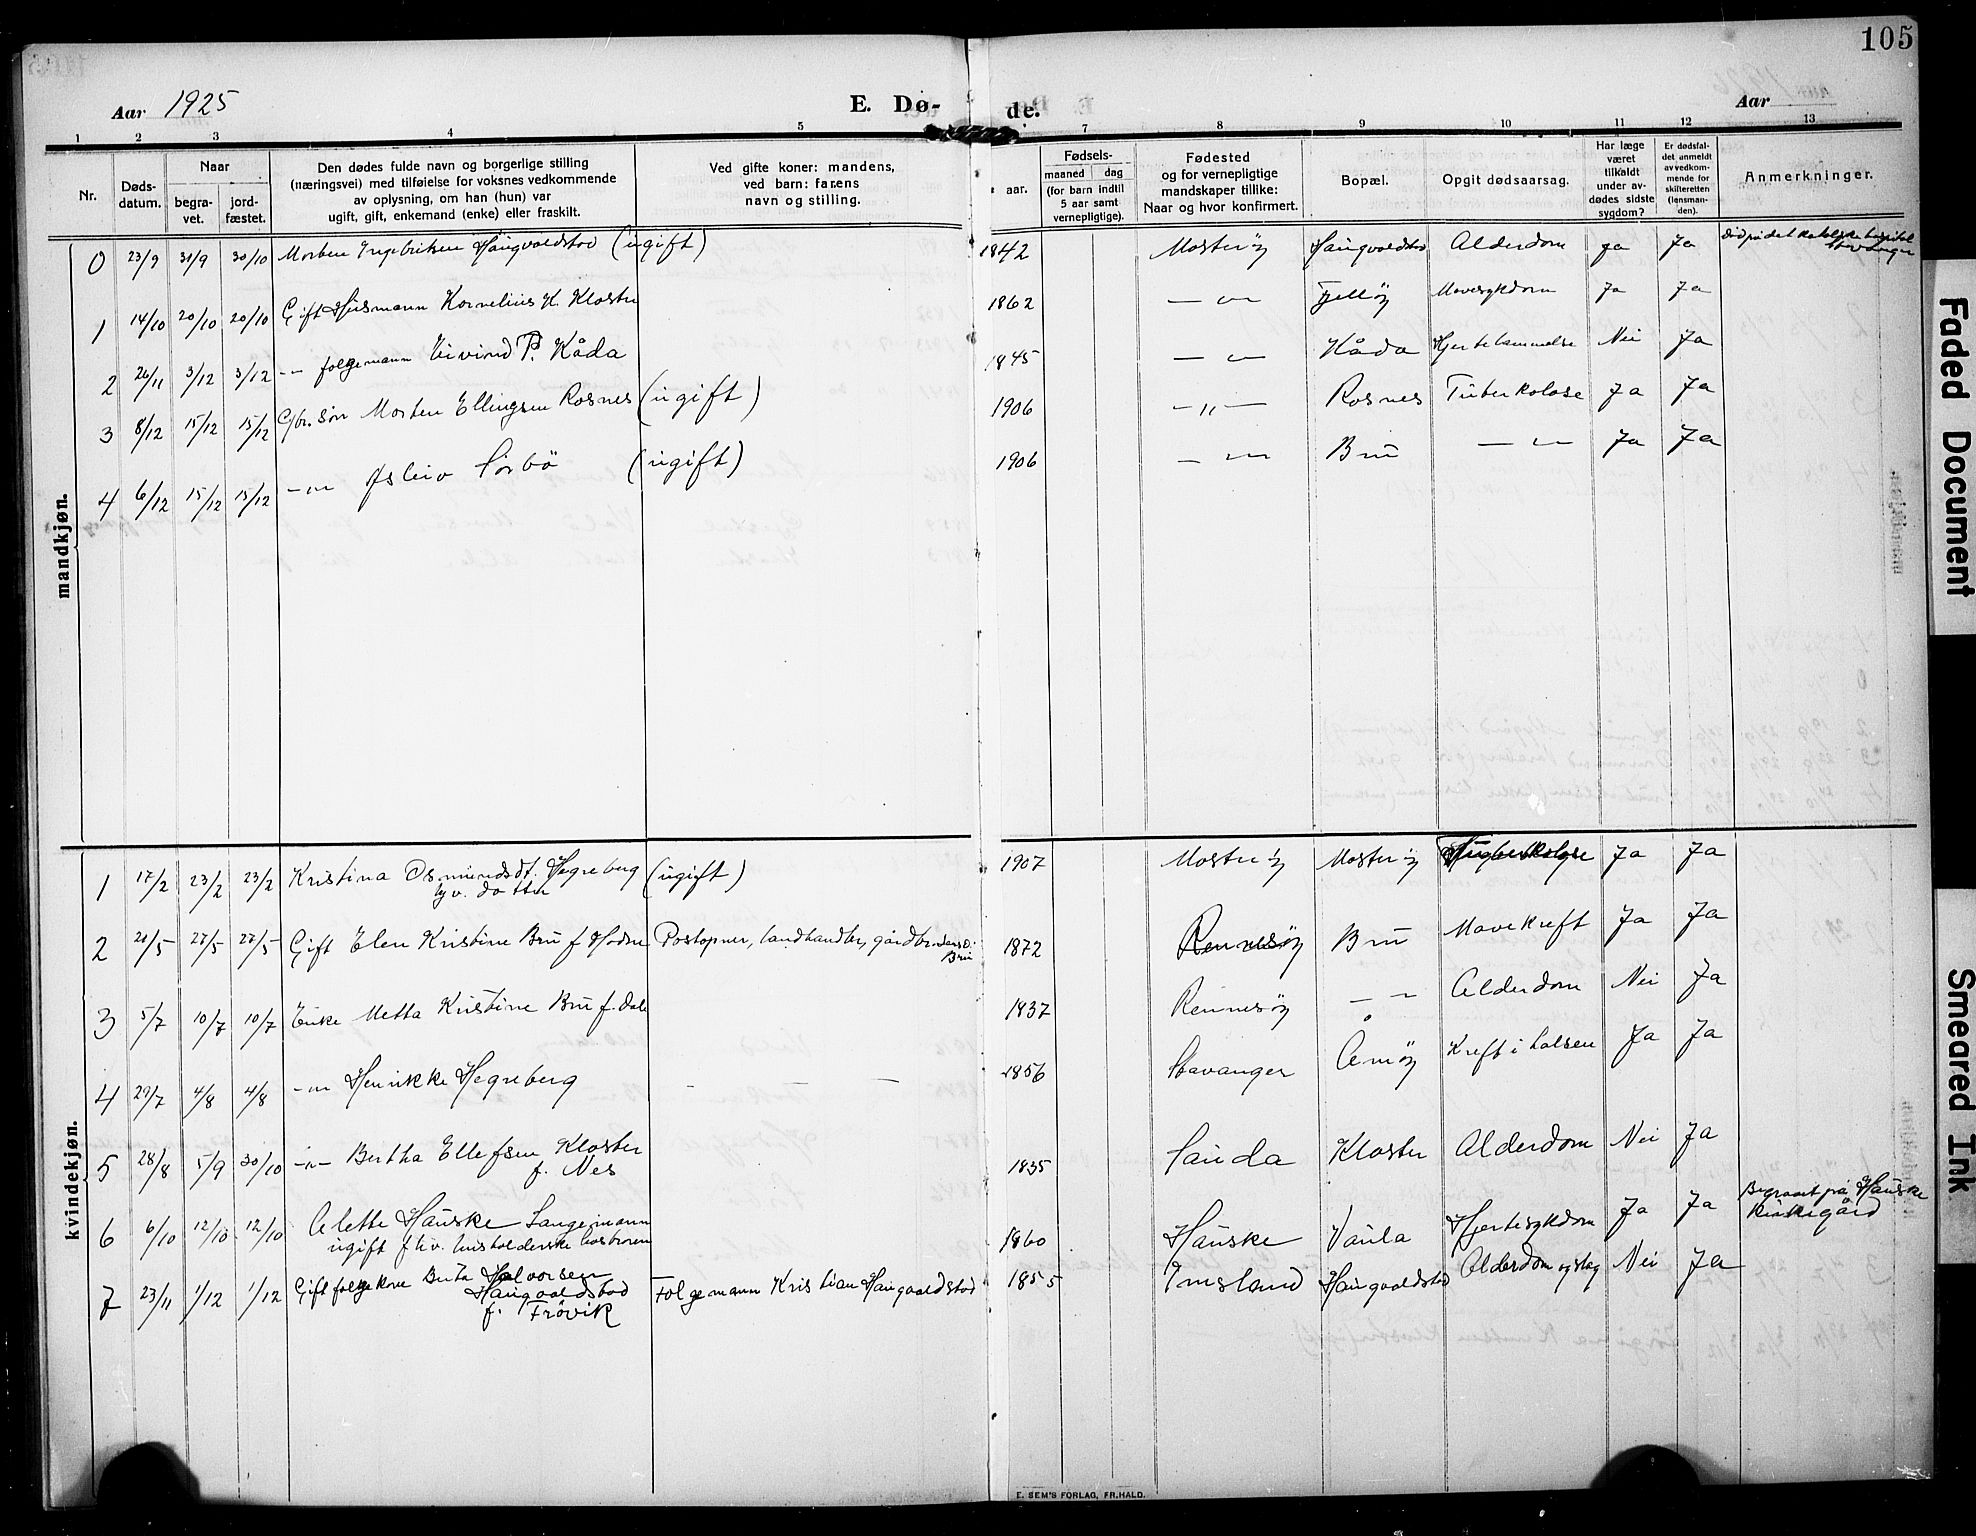 105
Aar 1925 E. Dø- de. Aar
1 2 3 4 5 7 8 9 10 11 12 13
Nr.
Døds-
datum.
Naar
begra-
vet.
jord-
fæstet.
Den dødes fulde navn og borgerlige stilling
(næringsvei) med tilføielse for voksnes vedkommende
av oplysning, om han (hun) var
ugift, gift, enkemand (enke) eller fraskilt.
Ved gifte koner: mandens,
ved barn: farens
navn og stilling.
aar.
Fødsels-
maaned dag
(for barn indtil
5 aar samt
vernepligtige).
Fødested
og for vernepligtige
mandskaper tillike:
Naar og hvor konfirmert.
Bopæl.
Opgit dødsaarsag.
Har læge
været
tilkaldt
under av-
dødes sidste
sygdom?
Er dødsfal-
det anmeldt
av vedkom-
mende for
skifteretten
(lensman-
den).
Anmerkninger.
mandkjøn.
0 23/9 31/9 30/10 Morten Ingebriksen Haugvaldstad (ugift) 1842 Mosterøy Haugvaldstad Alderdom ja Ja Død på det katolske hospital
Stavanger
1 14/10 20/10 20/10 Gift Husmann Kornelius K. Kloster 1862 — „ — Fjelløy Mavesykdom Ja Ja
2 26/11 3/12 3/12 -"- folgemann Eivind P. Kåda 1845 — „ — Kåda Hjertelammelse Nei Ja
3 8/12 15/12 15/12 Gbr. søn Morten Ellingsen Rosnes (ugift) 1906 — „ — Rosnes Tuberkolose Ja Ja
4 6/12 15/12 15/12 -"- Osleiv Sørbø (ugift) 1906 — „ — Bru — „ — Ja Ja
kvindekjøn.
1 17/2 23/2 23/2 Kristina Osmundsdt. Hegreberg (ugift) 1907 Mosterøy Mosterøy Ja Ja
datter
2 20/5 27/5 27/5 Gift Elen Kristine Bru f. Hodne Postopner, landhandler, gårdbr. 1872 Rennesøy Bru Mavekreft Ja Ja
Bru
3 5/7 10/7 10/7 Enke Metta Kristine Bru f. Dale 1837 Rennesøy — „ — Alderdom Nei Ja
4 29/7 4/8 4/8 -"- Henrikke Hegreberg — — — 1856 Stavanger Åmøy Kreft i halsen Ja Ja
5 28/8 5/9 30/10 -"- Bertha Ellefsen Kloster 1835 Sauda Kloster Alderdom Nei Ja
f. Nes
6 6/10 12/10 12/10 Alette Hauske Langemann 1860 Hauske Vaula Hjertesykdom Ja Ja Begravet på Hauske
kirkegård
ugift fhv. husholderske hos broren
7 23/11 1/12 1/12 Gift folgekone Berta Halvorsen Folgemann Kristian Haugvaldstad 1855 Imsland Haugvaldstad Alderdom og slag Nei Ja
Haugvaldstad
f. Frövik
E. SEM'S FORLAG, FR.HALD.
Faded Document
Smeared Ink